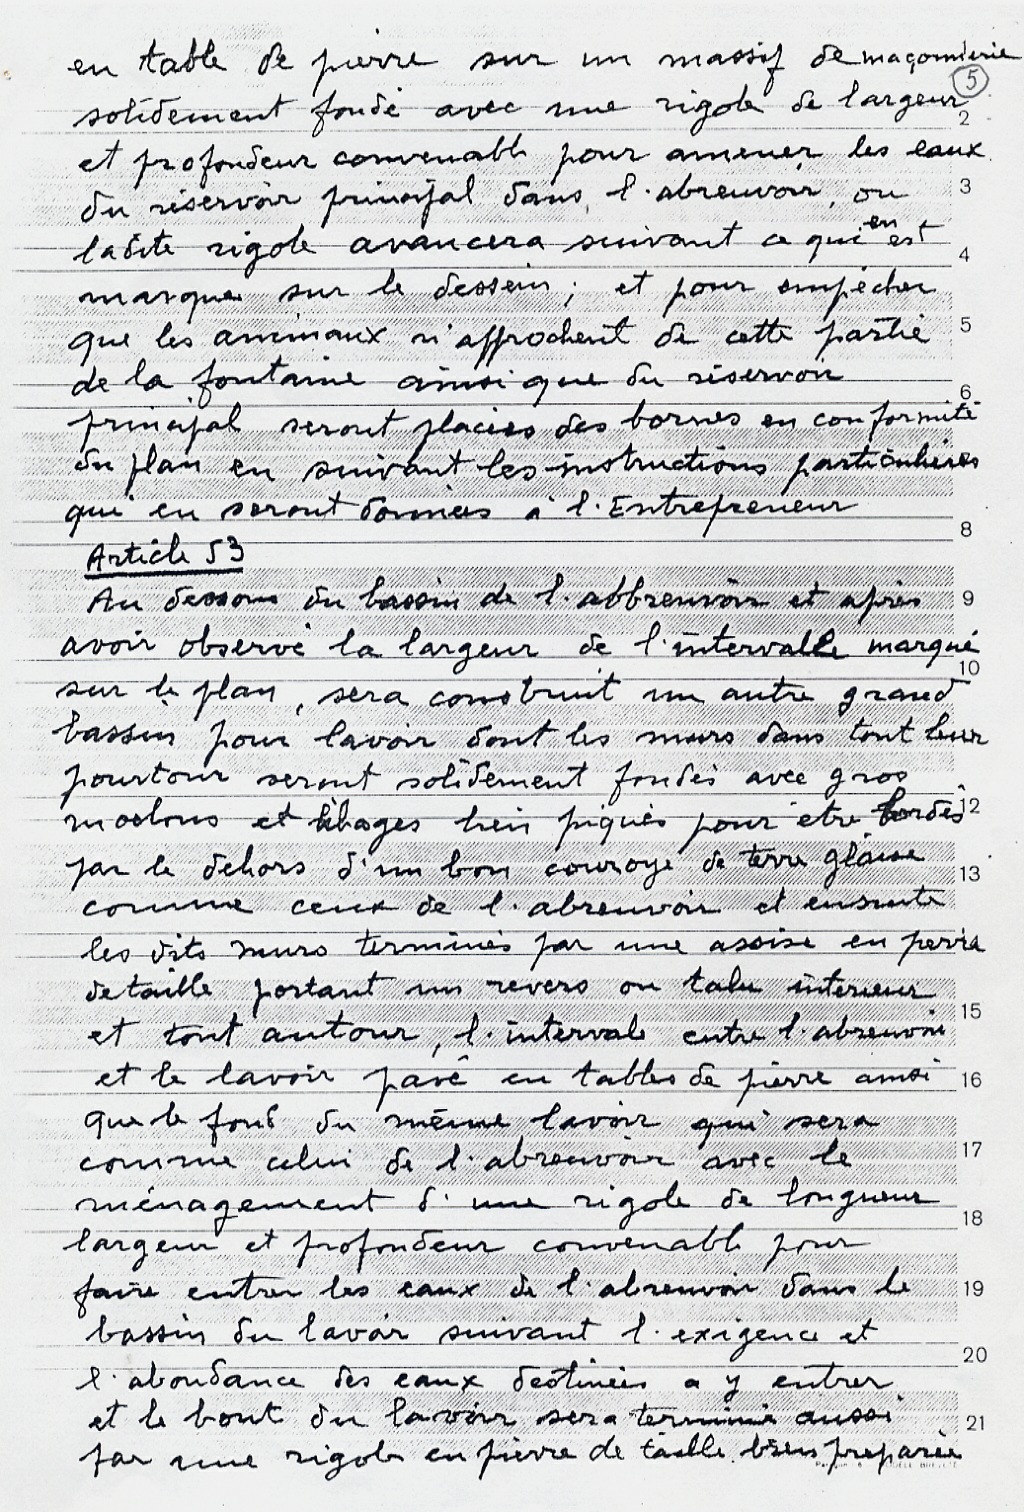 en table de pierre sur un massif de maçonnerie
5
solidement fondé avec une rigole de largeur
2
et profondeur convenable pour amener les eaux
du réservoir principal dans l'abreuvoir, ou
3
ladite rigole avancera suivant ce qui en est
4
marqué sur le dessein ; et pour empêcher
que les animaux n'approchent de cette partie
5
de la fontaine ainsi que du réservoir
6
principal seront placées des bornes en conformité
du plan en suivant les instructions particulières
qui en seront données à l'Entrepreneur
8
Article 53
Au dessous du bassin de l'abbreuvoir et après
9
avoir observé la largeur de l'intervalle marqué
10
sur le plan, sera construit un autre grand
bassin pour lavoir dont les murs dans tout leur
pourtour seront solidement fondés avec gros
12
moelons et libages bien piqués pour etre bordés
par le dehors d'un bon couroye de terre glaise
13
comme ceux de l'abreuvoir et ensuite
les dits murs terminés par une assise en pierre
de taille portant un revers ou talu interieur
15
et tout autour, l'intervale entre l'abreuvoir
et le lavoir pavé en tables de pierre ainsi
16
que le fond du même lavoir qui sera
comme celui de l'abreuvoir avec le
17
ménagement d'une rigole de longueur
18
largeur et profondeur convenable pour
faire entrer les eaux de l'abreuvoir dans le
19
bassin du lavoir suivant l'exigence et
20
l'abondance des eaux destinées a y entrer
et le bout du lavoir sera terminé aussi
21
par une rigole en pierre de taille bien preparée